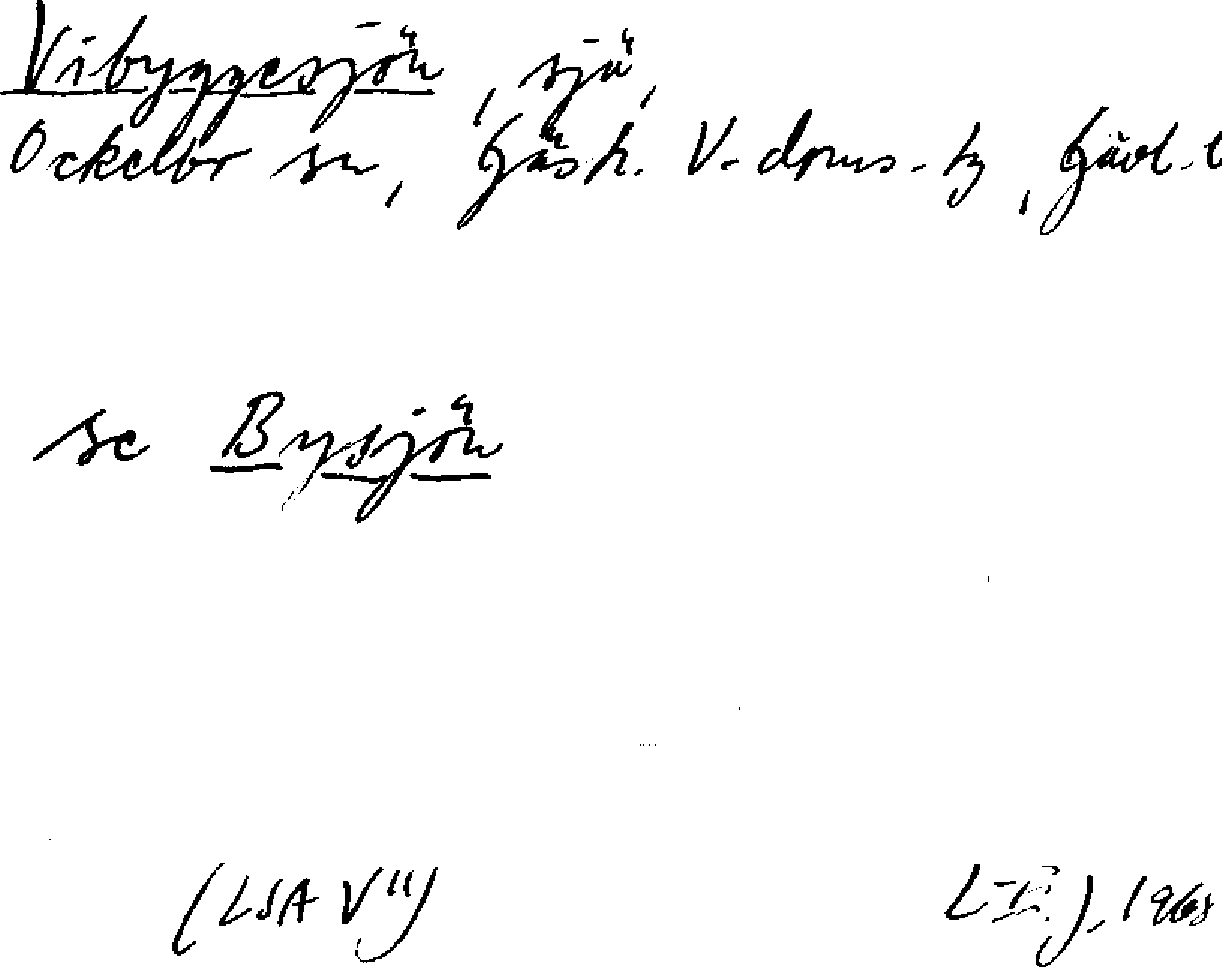 Vibyggesjön, sjö,
Ockelbo sn, Gästr. V. doms-hg, Gävl. l
se Bysjön
(LSA V")
L-E. J. 1968